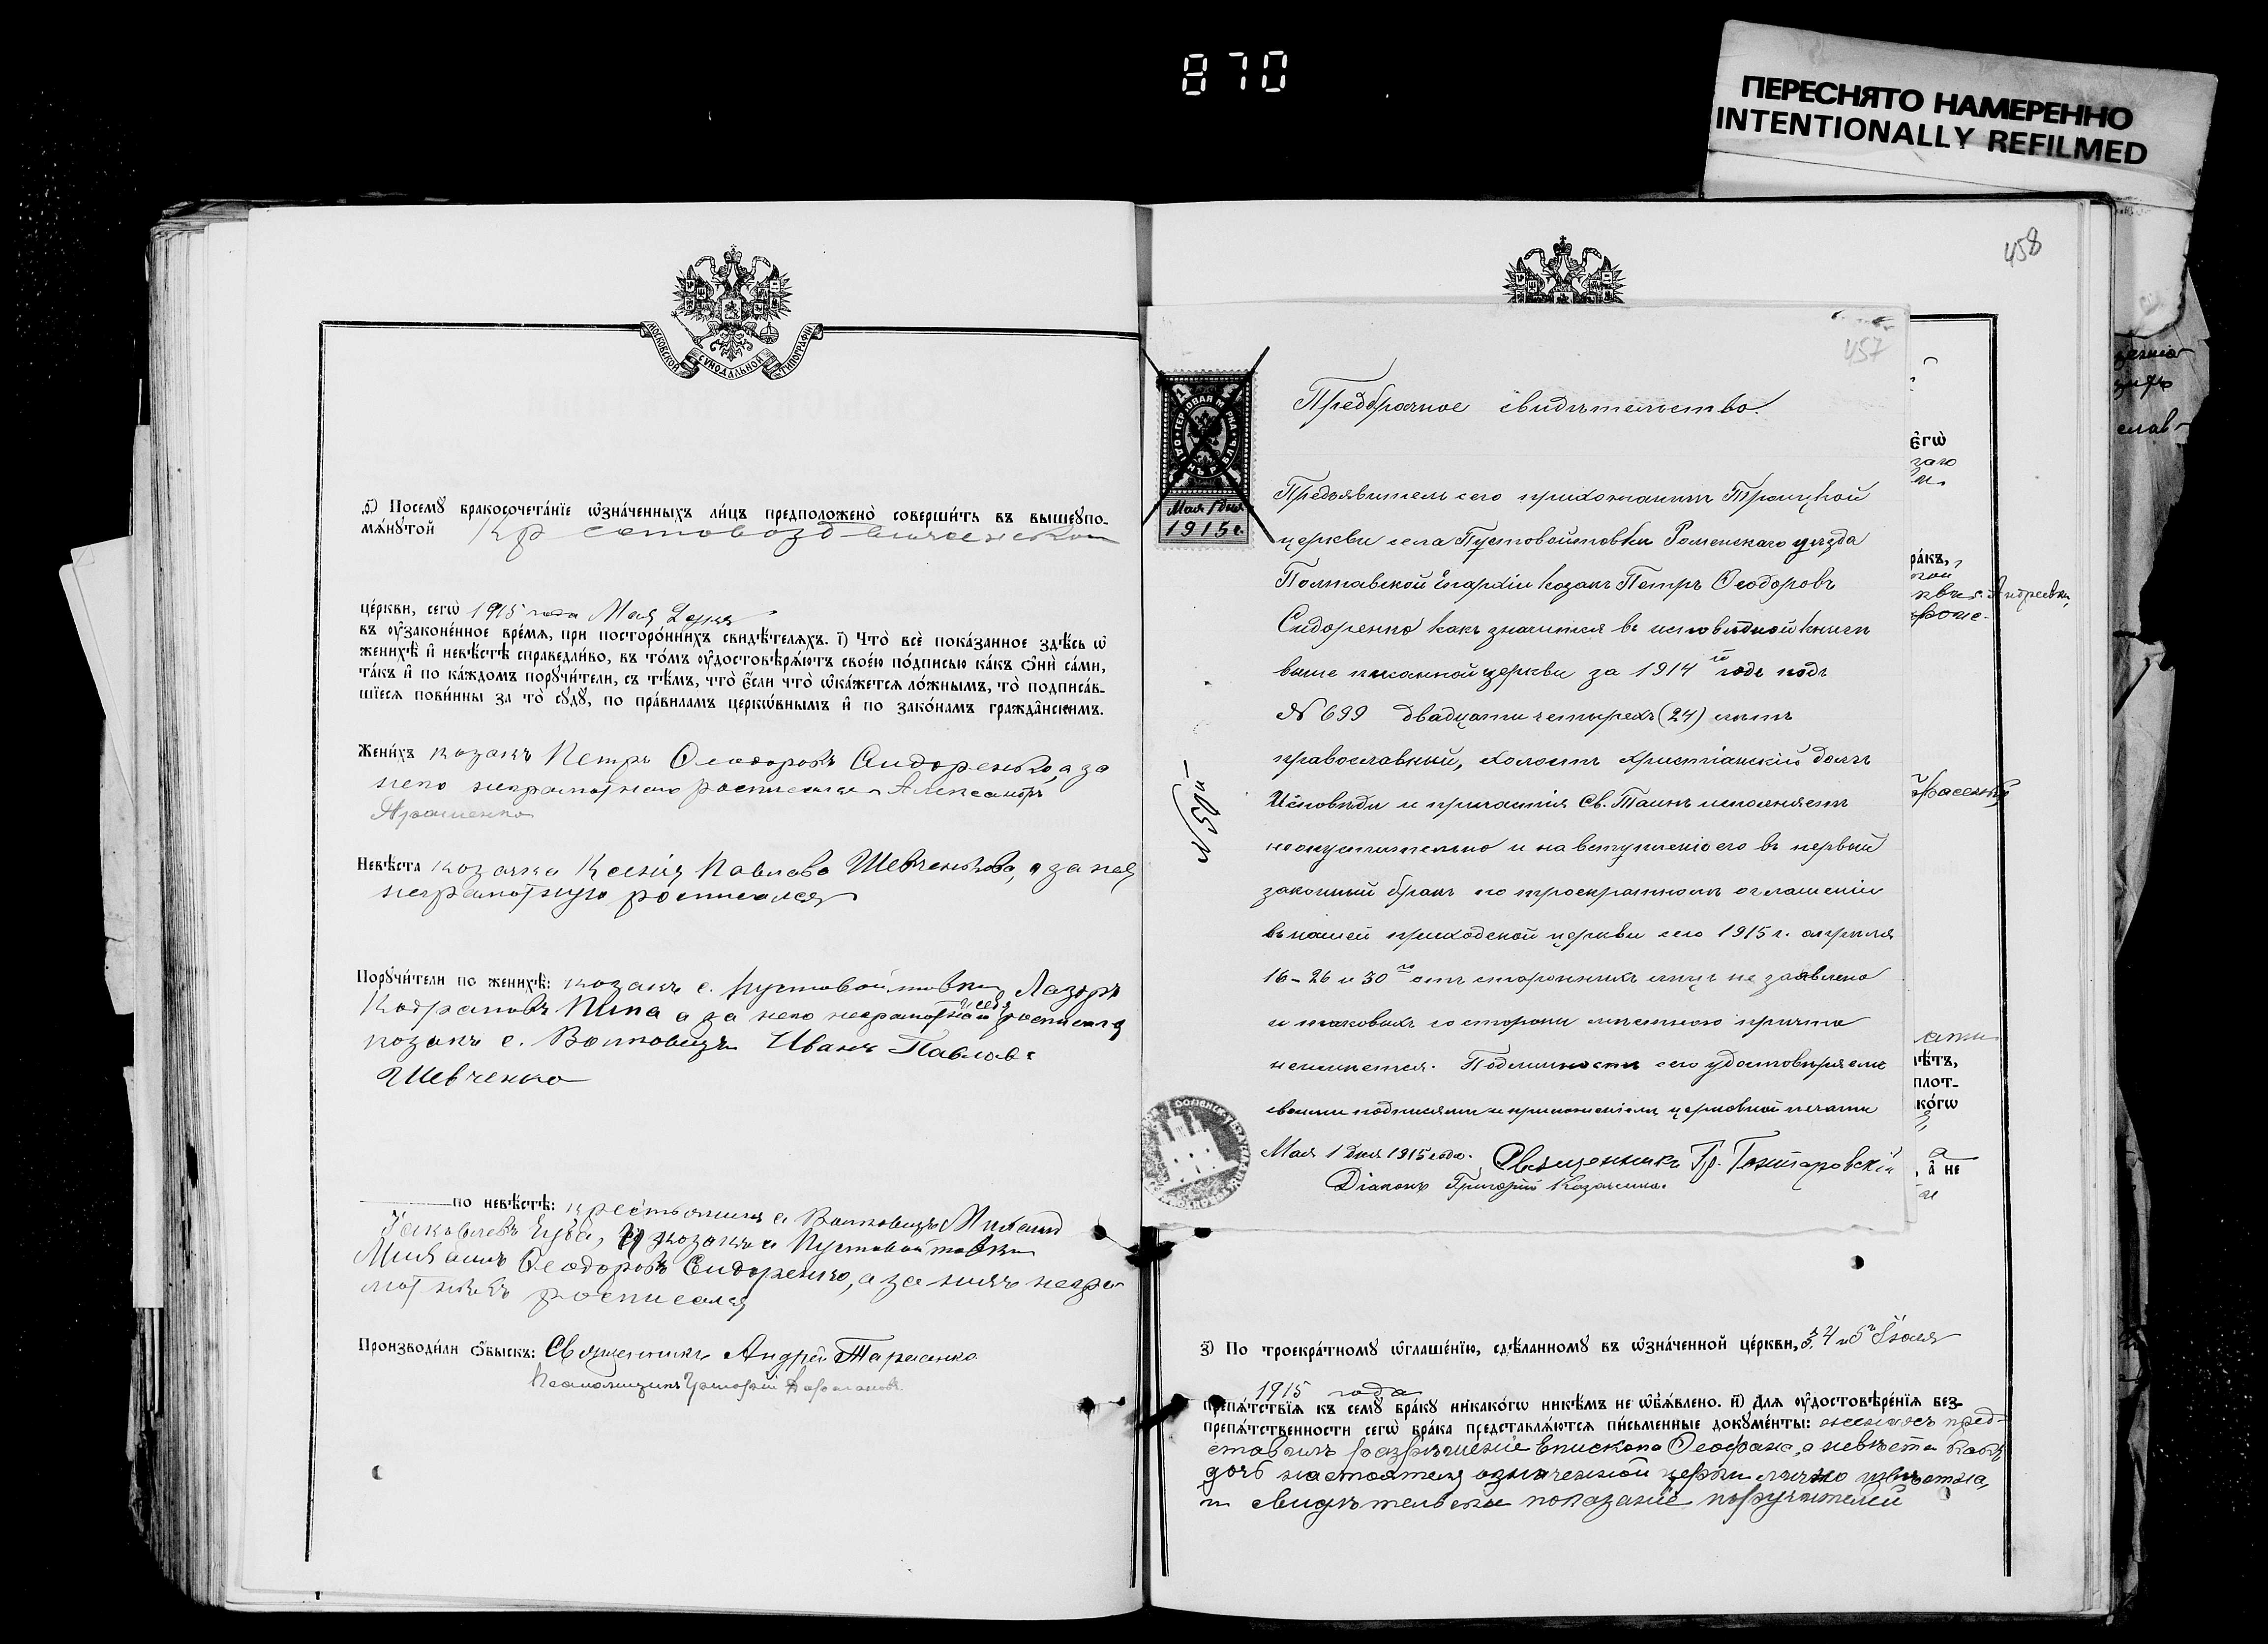 870
ПЕРЕСНЯТО НАМЕРЕННО
INTENTIONALLY REFILMED
МОСКОВСКОЙ СѴНОДАЛЬНОЙ ТИПОГРАФІИ
Посемꙋ̀ бракосочета́нїе ѡ҆зна́ченныхъ ли́цъ предположено̀ соверши́ть въ вышеꙋпо-
мѧ́нꙋтой Кр
це́ркви, сегѡ̀ 1915 года Мая 2 дня
въ ᲂу҆зако́ненное вре́мѧ, при посторо́ннихъ свидѣ́телѧхъ. і҃) Что̀ всѐ пока́занное здѣ́сь ѡ҆
женихѣ̀ и҆ невѣ́стѣ справедли́во, въ то́мъ ᲂу҆достовѣрѧ́ютъ свое́ю по́дписью ка́къ ѻ҆нѝ са́ми,
та́къ и҆ по ка́ждомъ порꙋчи́тели, съ тѣ́мъ, что̀ є҆́сли что̀ ѡ҆ка́жется ло́жнымъ, то̀ подписа́в-
шїесѧ пови́нны за то̀ сꙋдꙋ̀, по пра́виламъ церко́внымъ и҆ по зако́намъ гражда́нскимъ.
Жени́хъ козакъ Петръ Ѳеодоровъ Сидоренько, а за
него неграмотнаго росписался Александръ
Ярошенко
Невѣ́ста козачка Ксенія Павлова Шевченькова, а за нея
неграмотную росписался
Порꙋчи́тели по женихѣ̀: козакъ с. Пустовойтовки Лазарь
Кодратовъ Пипа а за него неграмотнаго и себя росписался
козакъ с. Волковецъ Иванъ Павловъ
Шевченко
по невѣ́стѣ: крестьянинъ с Волковецъ Михаилъ
Яковлевъ козакъ с Пустовойтовки
Михаилъ Ѳеодоровъ Сидоренко, а за нихъ негра-
мотныхъ росписался
Производи́ли ѻ҆́быскъ: Священникъ Андрей Тарасенко
Псаломщикъ Григорій
458
457
ОДИНЪ РУБЛЬ ГЕРБОВАЯ МАРКА
Мая 1 дня
1915 г.
Предбрачное свидѣтельство.
Предъявитель сего прихожанинъ Троицкой
церкви села Пустовойтовки Роменскаго уѣзда
Полтавской Епархіи козакъ Петръ Ѳеодоровъ
Сидоренко какъ значится въ исповѣдной книгѣ
выше писанной церкви за 1914 годъ подъ
№ 699 двадцати четырехъ (24) лѣтъ
православный, холостъ христіанскій долгъ
Исповѣди и причастія Св. Таинъ исполняетъ
неопустительно и на вступленіе его въ первый
законный бракъ по троекратномъ оглашеніи
въ нашей приходской церкви сего 1915 г. апрѣля
16-26 и 30го отъ стороннихъ лицъ не заявлено
и таковыхъ со стороны мѣстнаго причта
не имѣется. Подлинность сего удостовѣряемъ
своими подписями и приложеніемъ церковной печати
Мая 1 дня 1915 года. Священникъ Гр.
Діаконъ Григорій
є҆гѡ̀
ра́къ,
с. Андреевки,
лѣ́тъ,
плот-
ко́гѡ
а҆ не
з҃) По троекра́тномꙋ ѡ҆глаше́нїю, сдѣ́ланномꙋ въ ѡ҆зна́ченной це́ркви, 3, 4 и 5го Іюля
1915 года
препѧ́тствїѧ къ семꙋ̀ бра́кꙋ никако́гѡ никѣ́мъ не ѡ҆бѧ́влено. и҃) Длѧ ᲂу҆достовѣре́нїѧ без-
препѧ́тственности сегѡ̀ бра́ка представлѧ́ются пи́сьменные докꙋме́нты: женихъ пред-
ставилъ разрѣшеніе Епископа Ѳеофана, а невѣста какъ
дочь настоятеля означенной церкви лично извѣстна,
и свидѣтельское показаніе поручителей